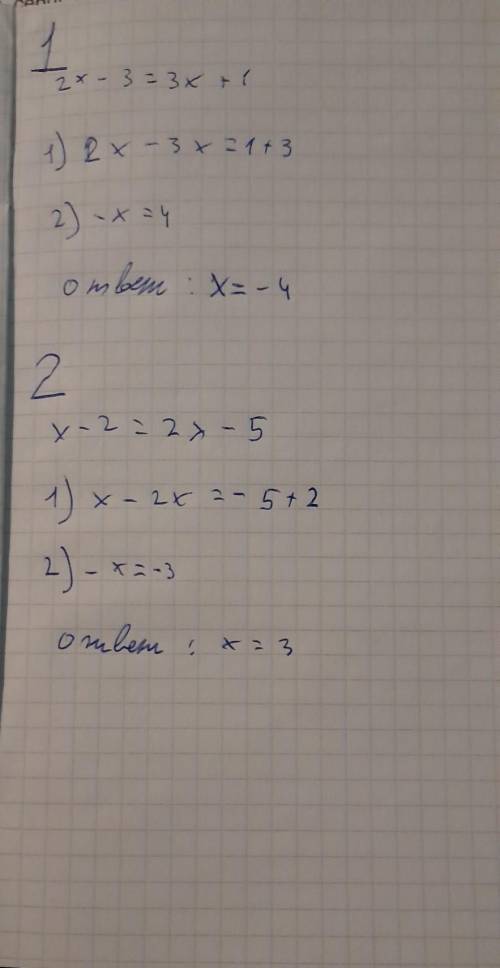 1
2x - 3 = 3x + 1
1) 2x - 3x = 1 + 3
2) - x = 4
ответ : x = - 4
2
x - 2 = 2x - 5
1) x - 2x = - 5 + 2
2) - x = -3
ответ : x = 3